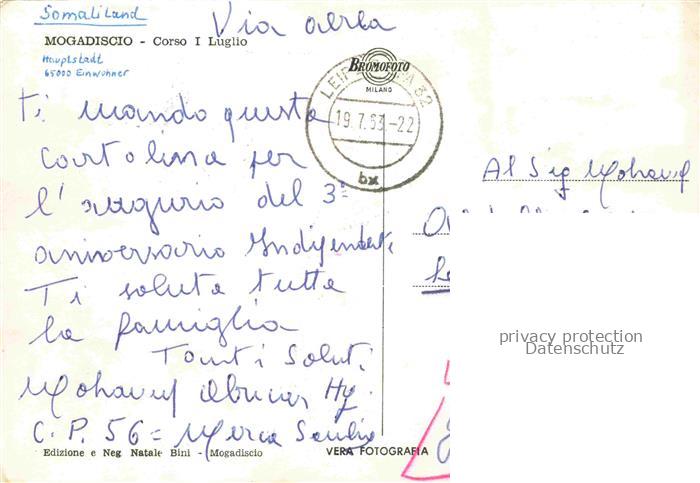 Somaliland
Via aerea
MOGADISCIO - Corso I Luglio
Hauptstadt
65000 Einwohner
BROMOFOTO
MILANO
LEIP A 32
19.7.63.-22
bx
Ti mando questa
cartolina per
l'augurio del 3°
aniversario
Ti saluta tutta
la famiglia
Tanti Saluti
C. P. 56 =
Al Sig
privacy protection
Datenschutz
Edizione e Neg Natale Bini - Mogadiscio
VERA FOTOGRAFIA